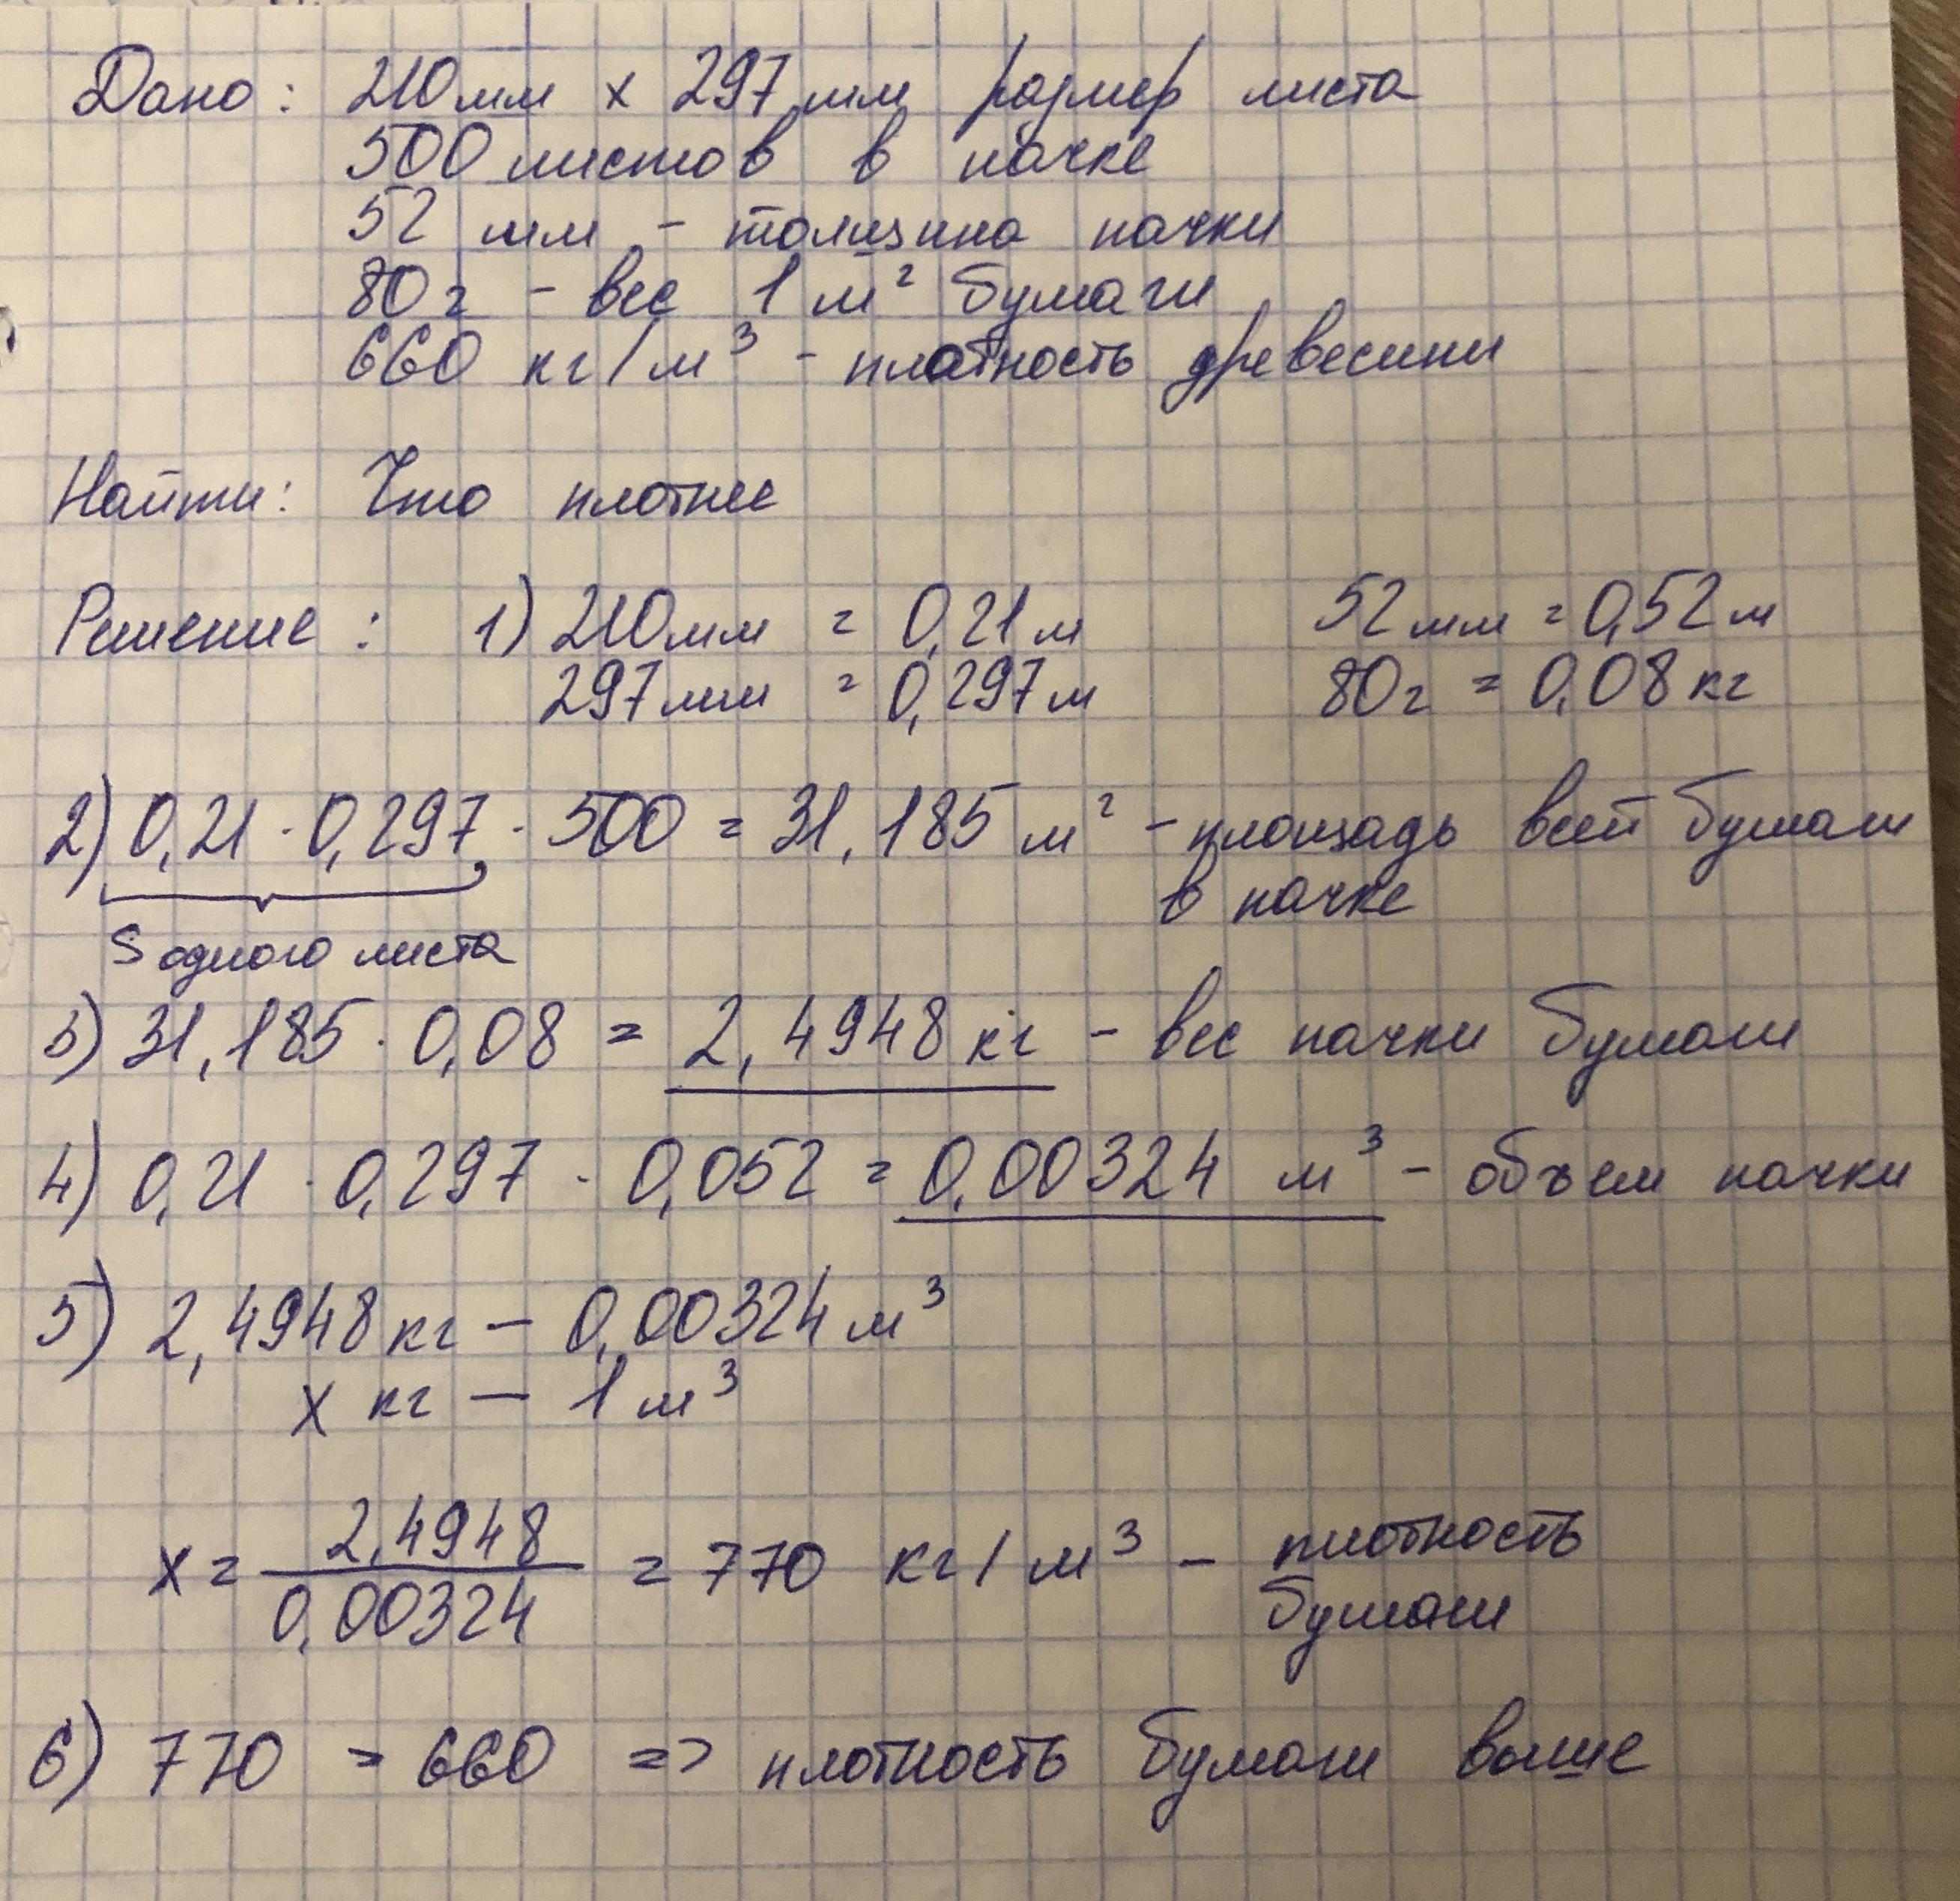 Дано: 210 мм х 297 мм размер листа
500 листов в пачке
52 мм - толщина пачки
80 г - вес 1 м² бумаги
660 кг/м³ - плотность древесины
Найти: Что плотнее
Решение: 1) 210 мм = 0,21 м 52 мм = 0,52 м
297 мм = 0,297 м 80 г = 0,08 кг
2) 0,21 · 0,297 · 500 = 31,185 м² - площадь всей бумаги
в пачке
S одного листа
3) 31,185 · 0,08 = 2,4948 кг - вес пачки бумаги
4) 0,21 · 0,297 · 0,052 = 0,00324 м³ - объем пачки
5) 2,4948 кг - 0,00324 м³
х кг - 1 м³
х = 2,4948 / 0,00324 = 770 кг/м³ - плотность
бумаги
6) 770 > 660 => плотность бумаги выше